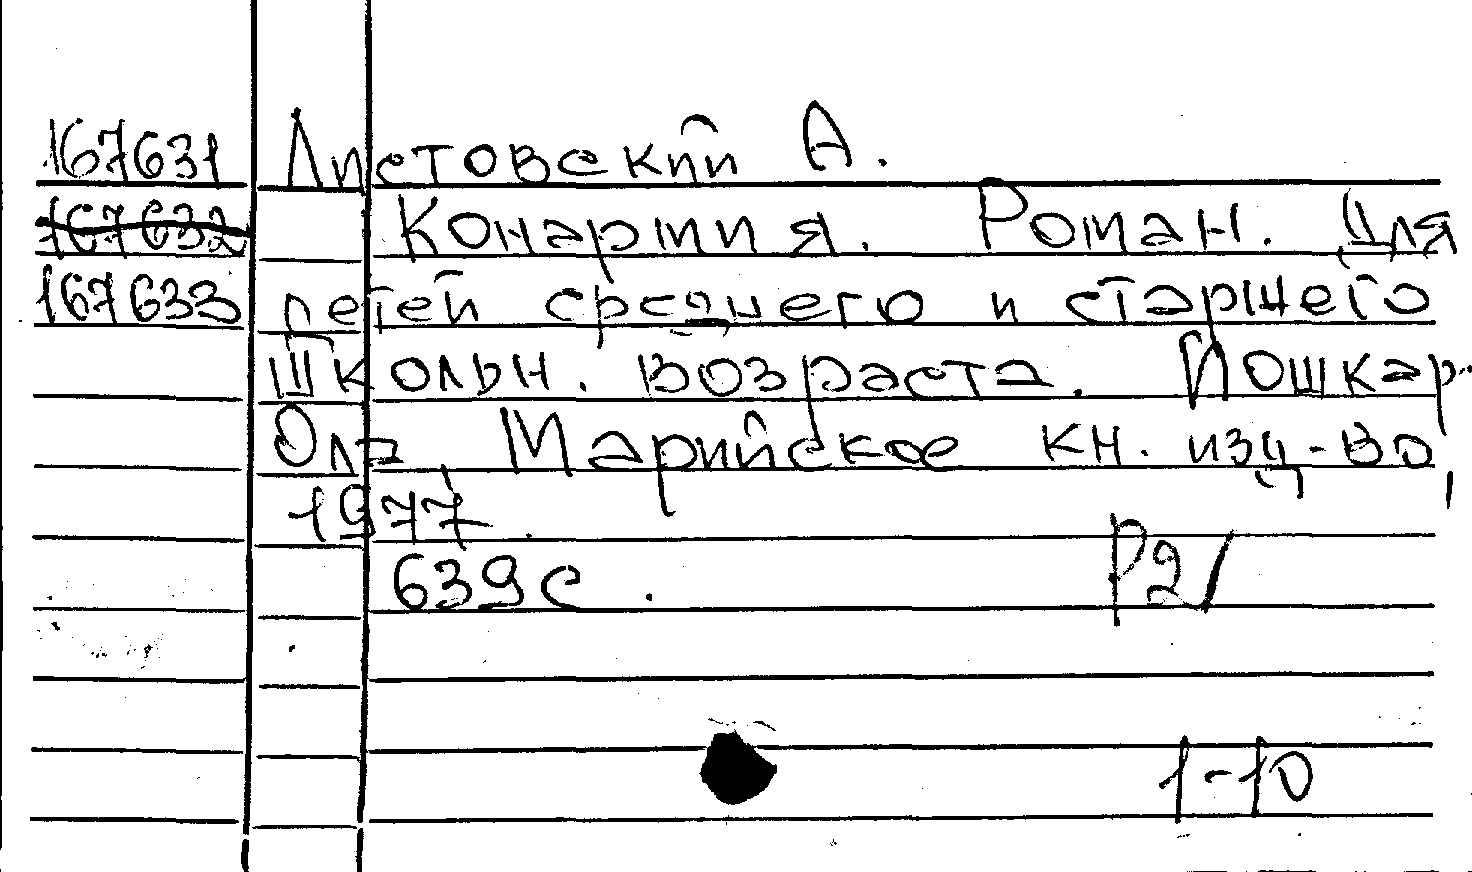 167631 Листовский А.
167632 Конармия. Роман. Для
167633 детей среднего и старшего
школьн. возраста. Йошкар-
Ола, Марийское кн. изд-во,
1977.
639 с. Р2
1-10